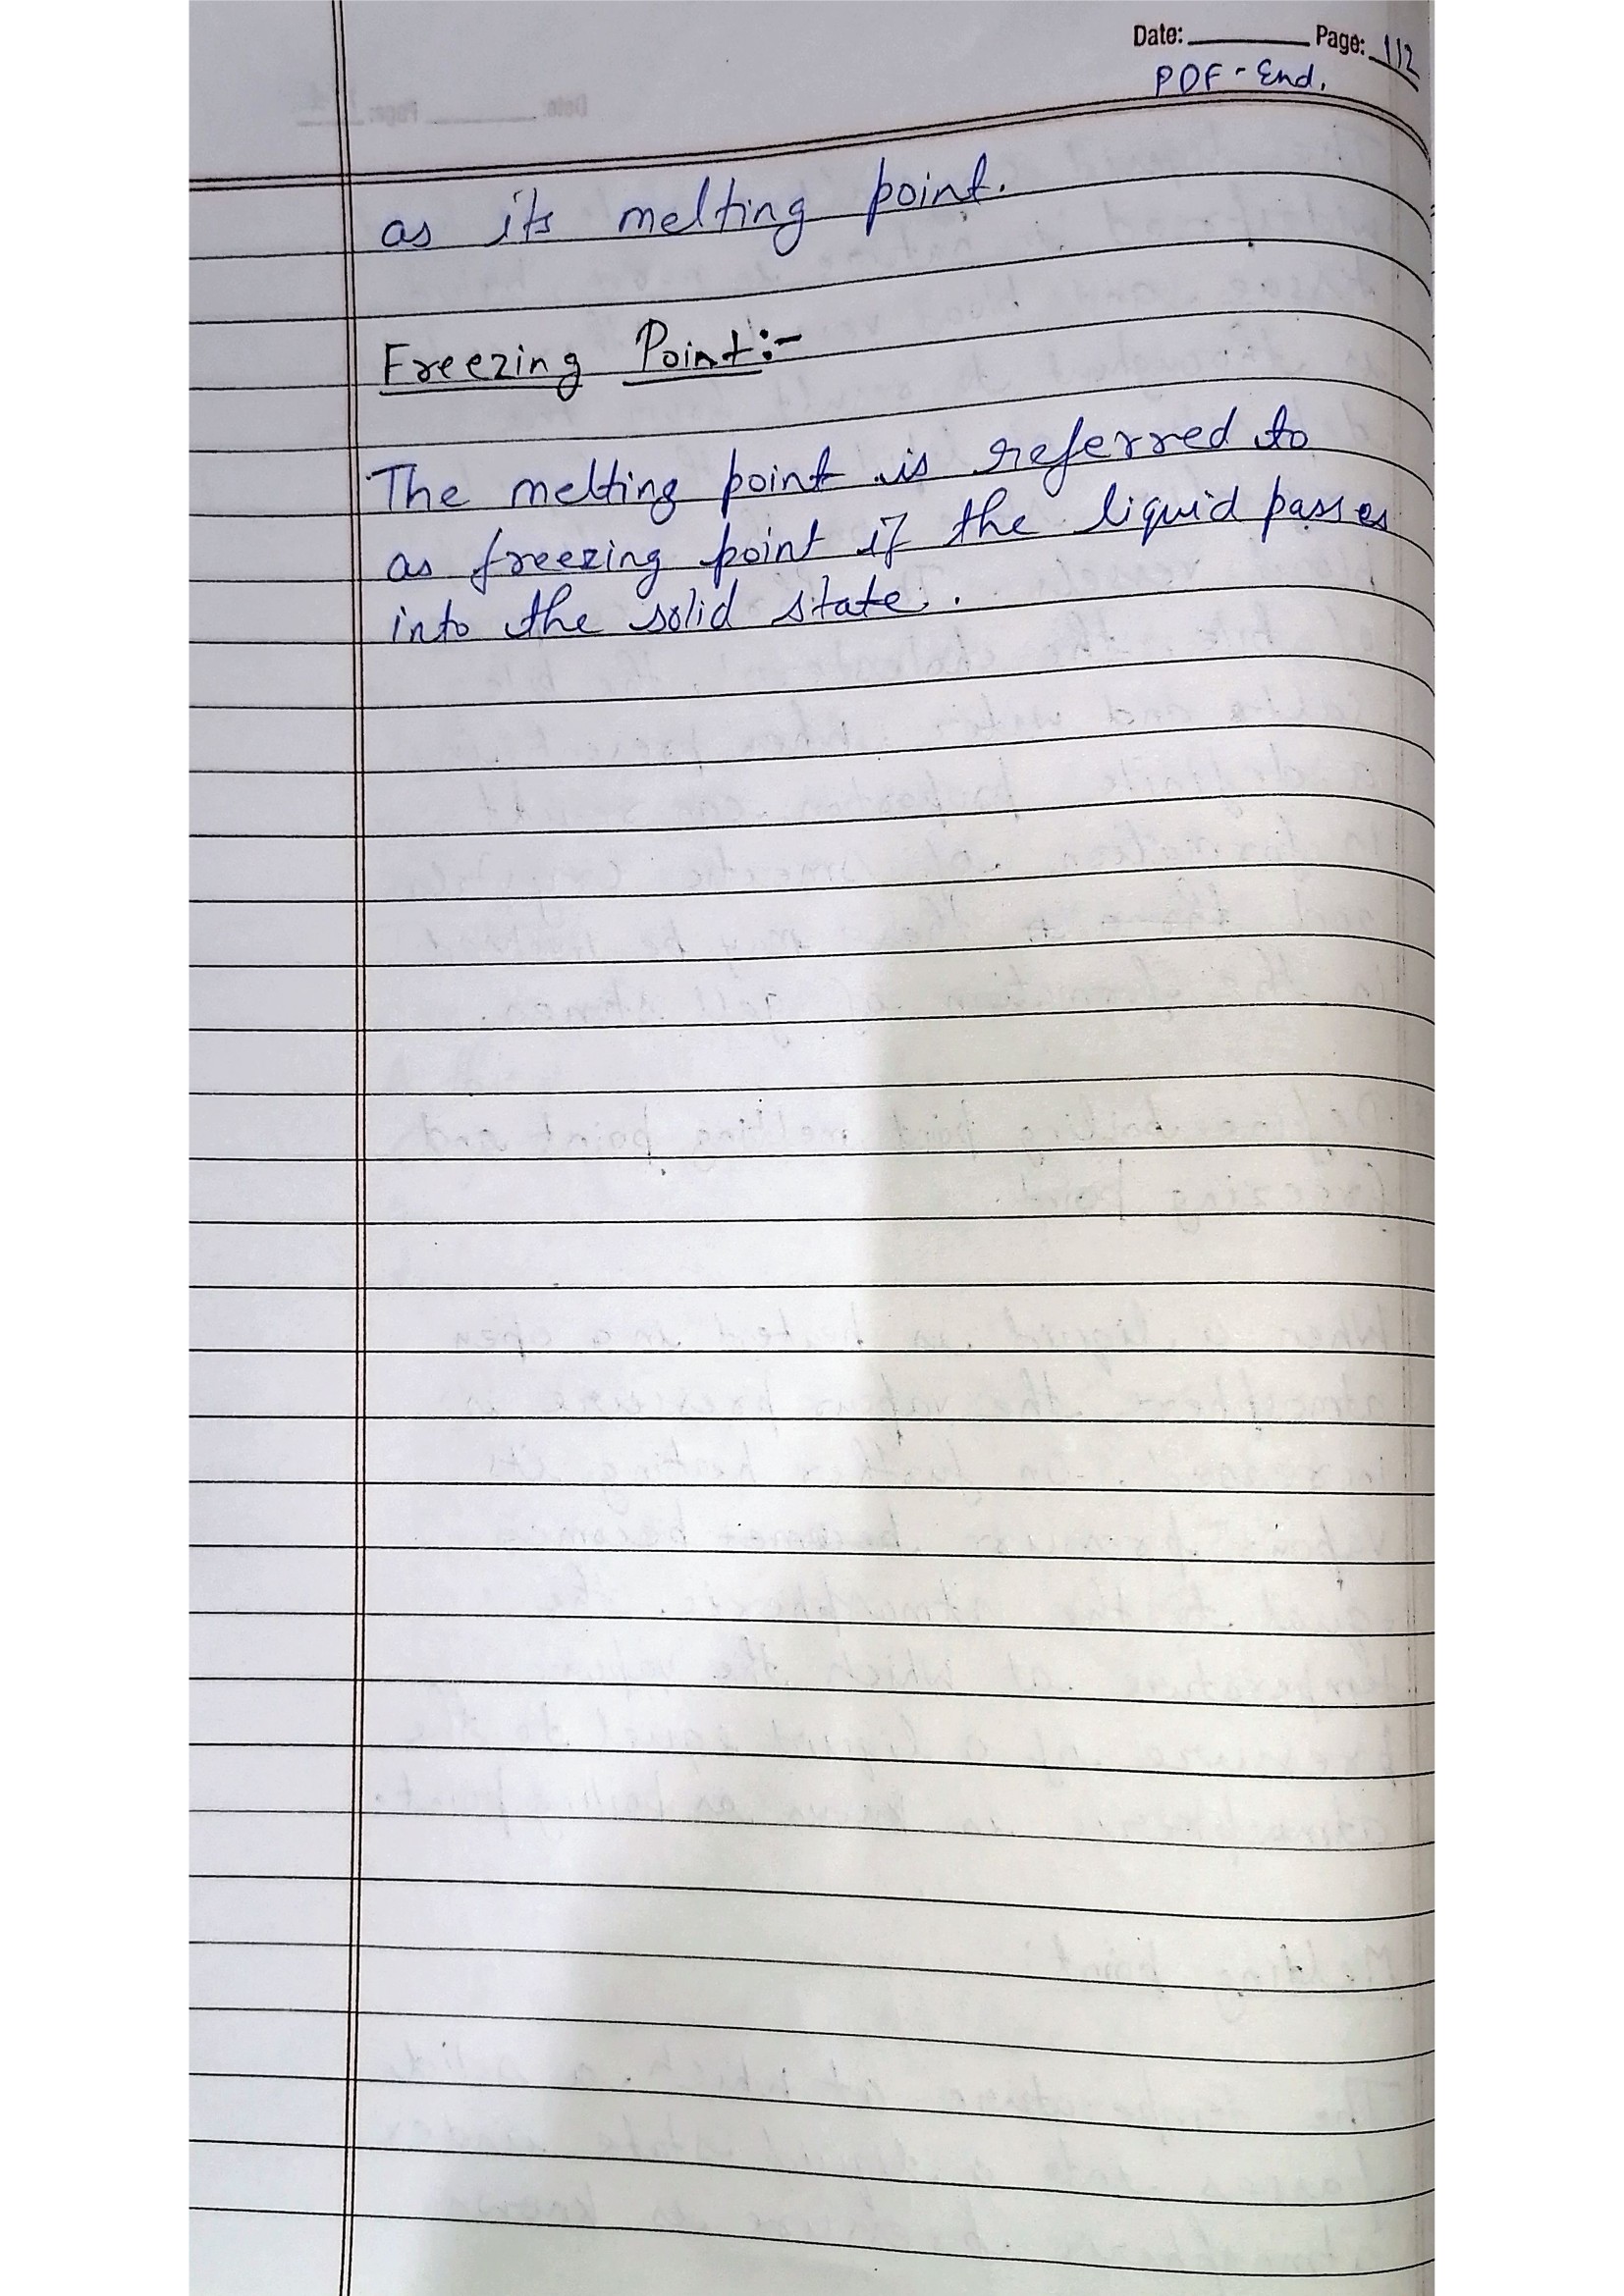 Date: Page: 112
PDF - End.
as its melting point.
Freezing Point:-
The melting point is referred to
as freezing point if the liquid passes
into the solid state.